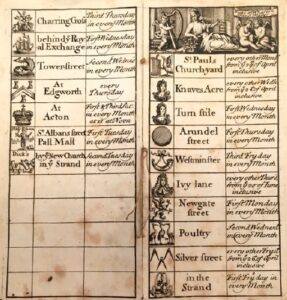 Charring Cross
Third Thursday
in every Month
behind yᵉ Roy
al Exchange
First Wednes
in every Month
Towerstreet
Second Wednes
in every Month
At
Edgworth
every
Thursday
At
Acton
First & Third
St. Albans street
Pall Mall
First Tuesday
in every Month
Dick's
by yᵉ New Church
in yᵉ Strand
Second Tuesday
in every Month
St. Pauls
Churchyard
every other
inclusive
Knaves Acre
every other
inclusive
Turn stile
First Wednesday
in every Month
Arundel
street
First Thursday
in every Month
Westminster
Third Fryday
in every Month
Ivy lane
every other
inclusive
Newgate
street
First Monday
in every Month
Poultry
Second Wednes
in every Month
Silver street
every other
inclusive
in the
Strand
First Fryday in
every Month